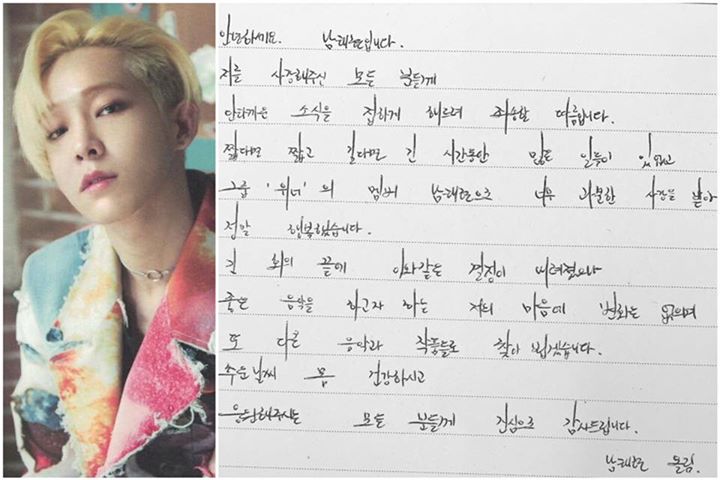 안녕하세요. 남태현입니다.
저를 사랑해주신 모든 분들께
안타까운 소식을 접하게 해드려 죄송할 따름입니다.
짧다면 짧고 길다면 긴 시간동안 많은 일들이 있었고
그룹 '위너'의 멤버 남태현으로 너무 과분한 사랑을 받아
정말 행복했습니다.
긴 회의 끝에 이와같은 결정이 내려졌으나
좋은 음악을 하고자 하는 저의 마음에 변화는 없으며
또 다른 음악과 작품들로 찾아 뵙겠습니다.
추운날씨 몸 건강하시고
응원해주시는 모든 분들께 진심으로 감사드립니다.
남태현 올림.